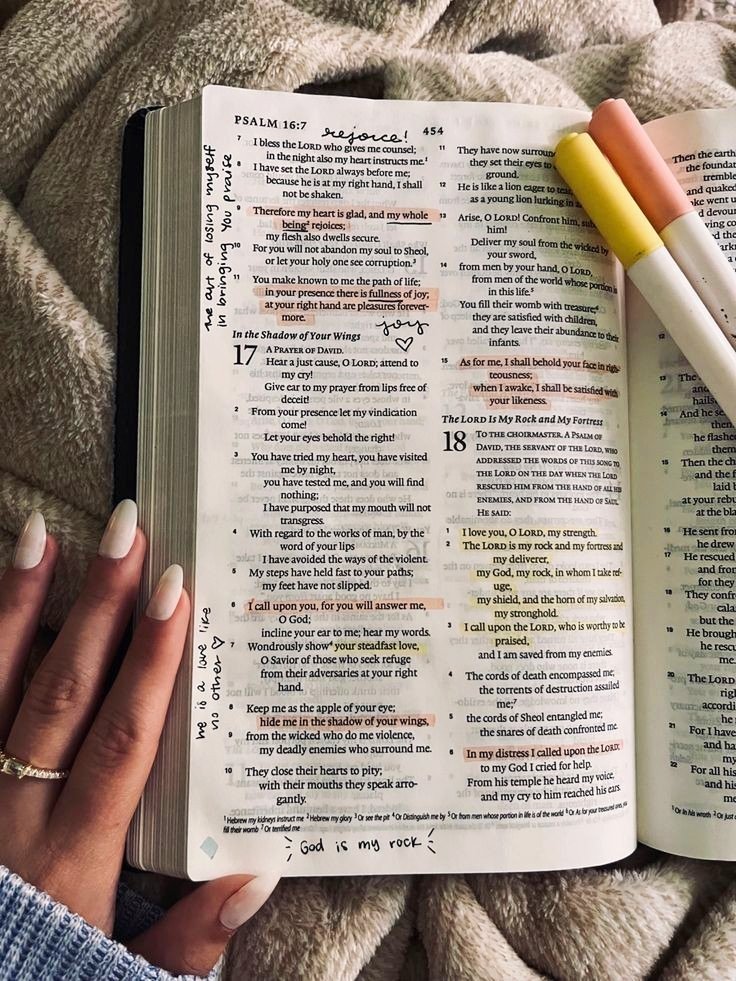 PSALM 16:7
454
rejoice!
7 I bless the LORD who gives me counsel;
in the night also my heart instructs me.1
8 I have set the LORD always before me;
because he is at my right hand, I shall
not be shaken.
9 Therefore my heart is glad, and my whole
being2 rejoices;
my flesh also dwells secure.
10 For you will not abandon my soul to Sheol,
or let your holy one see corruption.3
11 You make known to me the path of life;
in your presence there is fullness of joy;
at your right hand are pleasures forever-
more.
joy
In the Shadow of Your Wings
17 A PRAYER OF DAVID.
Hear a just cause, O LORD; attend to
my cry!
Give ear to my prayer from lips free of
deceit!
2 From your presence let my vindication
come!
Let your eyes behold the right!
3 You have tried my heart, you have visited
me by night,
you have tested me, and you will find
nothing;
I have purposed that my mouth will not
transgress.
4 With regard to the works of man, by the
word of your lips
I have avoided the ways of the violent.
5 My steps have held fast to your paths;
my feet have not slipped.
6 I call upon you, for you will answer me,
O God;
incline your ear to me; hear my words.
7 Wondrously show4 your steadfast love,
O Savior of those who seek refuge
from their adversaries at your right
hand.
8 Keep me as the apple of your eye;
hide me in the shadow of your wings,
9 from the wicked who do me violence,
my deadly enemies who surround me.
10 They close their hearts to pity;
with their mouths they speak arro-
gantly.
11 They have now surroun
they set their eyes to
ground.
12 He is like a lion eager to tea
as a young lion lurking in
13 Arise, O LORD! Confront him, su
him!
Deliver my soul from the wicked by
your sword,
14 from men by your hand, O LORD,
from men of the world whose portion is
in this life.5
You fill their womb with treasure;6
they are satisfied with children,
and they leave their abundance to their
infants.
15 As for me, I shall behold your face in righ-
teousness;
when I awake, I shall be satisfied with
your likeness.
The LORD Is My Rock and My Fortress
18 TO THE CHOIRMASTER. A PSALM OF
DAVID, THE SERVANT OF THE LORD, WHO
ADDRESSED THE WORDS OF THIS SONG TO
THE LORD ON THE DAY WHEN THE LORD
RESCUED HIM FROM THE HAND OF ALL HIS
ENEMIES, AND FROM THE HAND OF SAUL.
HE SAID:
1 I love you, O LORD, my strength.
2 The LORD is my rock and my fortress and
my deliverer,
my God, my rock, in whom I take ref-
uge,
my shield, and the horn of my salvation,
my stronghold.
3 I call upon the LORD, who is worthy to be
praised,
and I am saved from my enemies.
4 The cords of death encompassed me;
the torrents of destruction assailed
me;7
5 the cords of Sheol entangled me;
the snares of death confronted me.
6 In my distress I called upon the LORD;
to my God I cried for help.
From his temple he heard my voice,
and my cry to him reached his ears.
1 Hebrew my kidneys instruct me 2 Hebrew my glory 3 Or see the pit 4 Or Distinguish me by 5 Or from men whose portion in life is of the world 6 Or As for your treasured
fill their womb 7 Or terrified me
God is my rock
the art of losing myself
in bringing You praise
he is a love like
no other
Then the earth
the foundat
trembled
and quaked
went u
d devour
13 The
hails
14 And he s
them
he flashed
them
15 Then the ch
laid b
at your rebu
at the bla
16 He sent from
he drew
17 He rescued
and from
for they
18 They confr
cala
but the
19 He brough
he rescu
me.
20 The LORD
righ
accordi
he re
21 For I have
and ha
my
22 For all his
and his
me